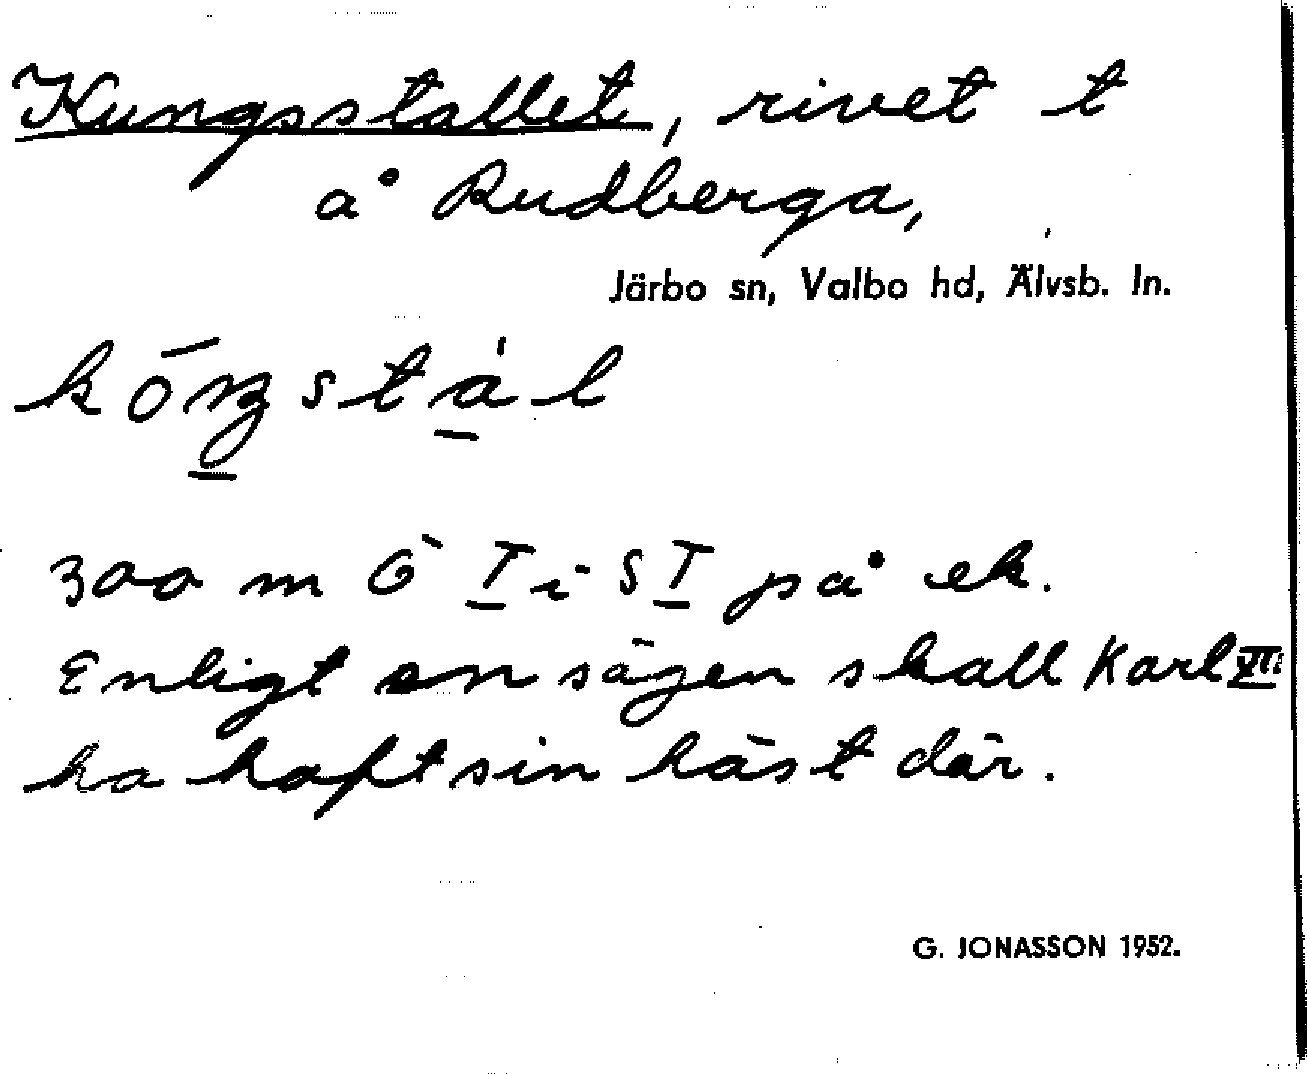 Kungsstallet, rivet t
å Rudberga,
Järbo sn, Valbo hd, Älvsb. ln.
300 m Ö I i S I på ek.
Enligt en sägen skall Karl XII
ha haft sin häst där.
G. JONASSON 1952.